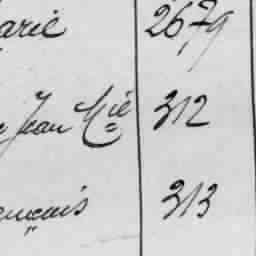 arie 2679
Jean Mie 312
ançais 313